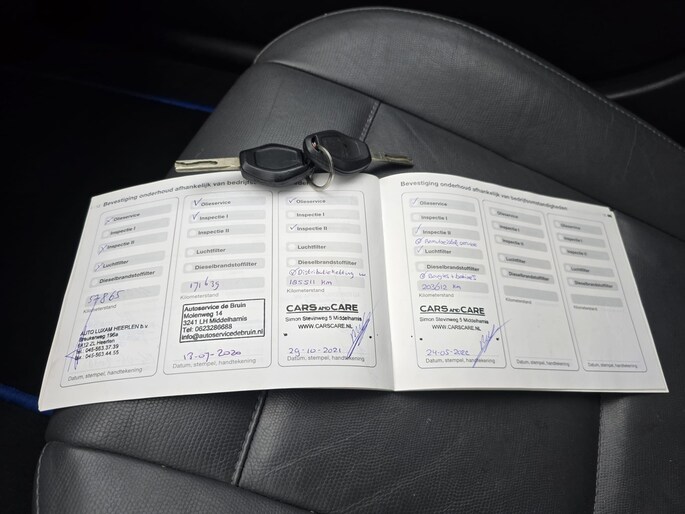 Bevestiging onderhoud afhankelijk van
Olieservice
Inspectie I
Inspectie II
Luchtfilter
Dieselbrandstoffilter
57865
Kilometerstand
AUTO LUXAM HEERLEN b.v.
Datum, stempel, handtekening
Olieservice
Inspectie I
Inspectie II
Luchtfilter
Dieselbrandstoffilter
171639
Kilometerstand
Autoservice de Bruin
Molenweg 14
3241 LH Middelharnis
Tel: 0623286688
info@autoservicedebruin.nl
13-07-2020
Datum, stempel, handtekening
Olieservice
Inspectie I
Inspectie II
Luchtfilter
Dieselbrandstoffilter
Kilometerstand
CARS AND CARE
Simon Stevinweg 5 Middelharnis
WWW.CARSCARE.NL
29-10-2021
Datum, stempel, handtekening
Bevestiging onderhoud afhankelijk van bedrijfsomstandigheden
Olieservice
Inspectie I
Inspectie II
Luchtfilter
Dieselbrandstoffilter
203612 km
Kilometerstand
CARS AND CARE
Simon Stevinweg 5 Middelharnis
WWW.CARSCARE.NL
24-05-2022
Datum, stempel, handtekening
Olieservice
Inspectie I
Inspectie II
Luchtfilter
Dieselbrandstoffilter
Kilometerstand
Datum, stempel, handtekening
Olieservice
Inspectie I
Inspectie II
Luchtfilter
Dieselbrandstoffilter
Kilometerstand
Datum, stempel, handtekening